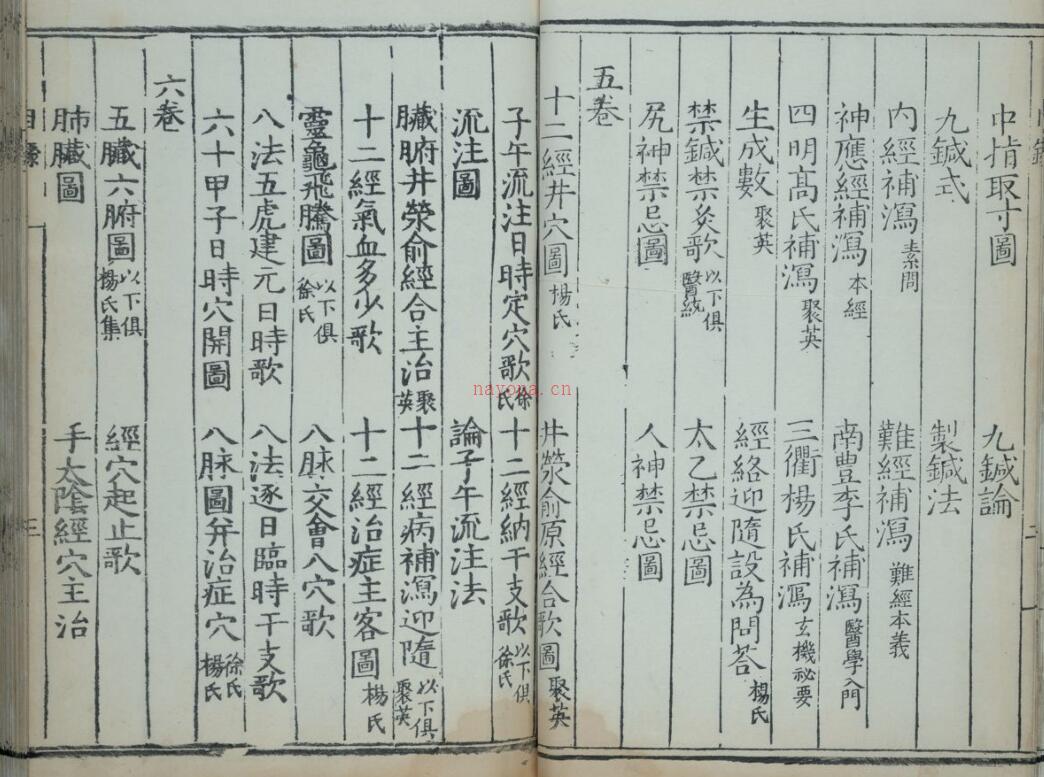 中指取寸圖　九鍼論
九鍼式　製鍼法
內經補瀉 素問　難經補瀉 難經本義
神應經補瀉 本經　南豊李氏補瀉 醫學入門
四明髙氏補瀉 聚英　三衢楊氏補瀉 玄機祕要
生成數 聚英　經絡迎隨設為問荅 楊氏
禁鍼禁灸歌 以下俱醫統　太乙禁忌圖
尻神禁忌圖　人神禁忌圖
五卷
十二經井穴圖 楊氏　井滎俞原經合歌圖 聚英
子午流注日時定穴歌 徐氏　十二經納干支歌 以下俱徐氏
流注圖　論子午流注法
臟腑井滎俞經合主治 聚英　十二經病補瀉迎隨 以下俱聚英
十二經氣血多少歌　十二經治症主客圖 楊氏
靈龜飛騰圖 以下俱徐氏　八脉交會八穴歌
八法五虎建元日時歌　八法逐日臨時干支歌
六十甲子日時穴開圖　八脉圖并治症穴 徐氏楊氏
六卷
五臟六腑圖 以下俱楊氏集　經穴起止歌
肺臟圖　手太陰經穴主治
目錄
三
nayona.cn